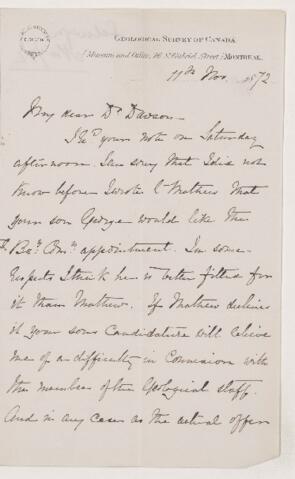 GEOLOGICAL SURVEY OF CANADA
Museum and Office, 76 St. Gabriel Street, MONTREAL,
11th Nov. 1872
My dear Dr Dawson.
I recd your note on Saturday
afternoon. I am sorry that I did not
know before I wrote to Mathew that
your son George would like the
Bdy Comn appointment. In some
respects I think he is better fitted for
it than Mathew. If Mathew declines
it your sons Candidature will relieve
me of a difficulty in Connexion with
the members of the Geological staff.
And in any case as the actual offer